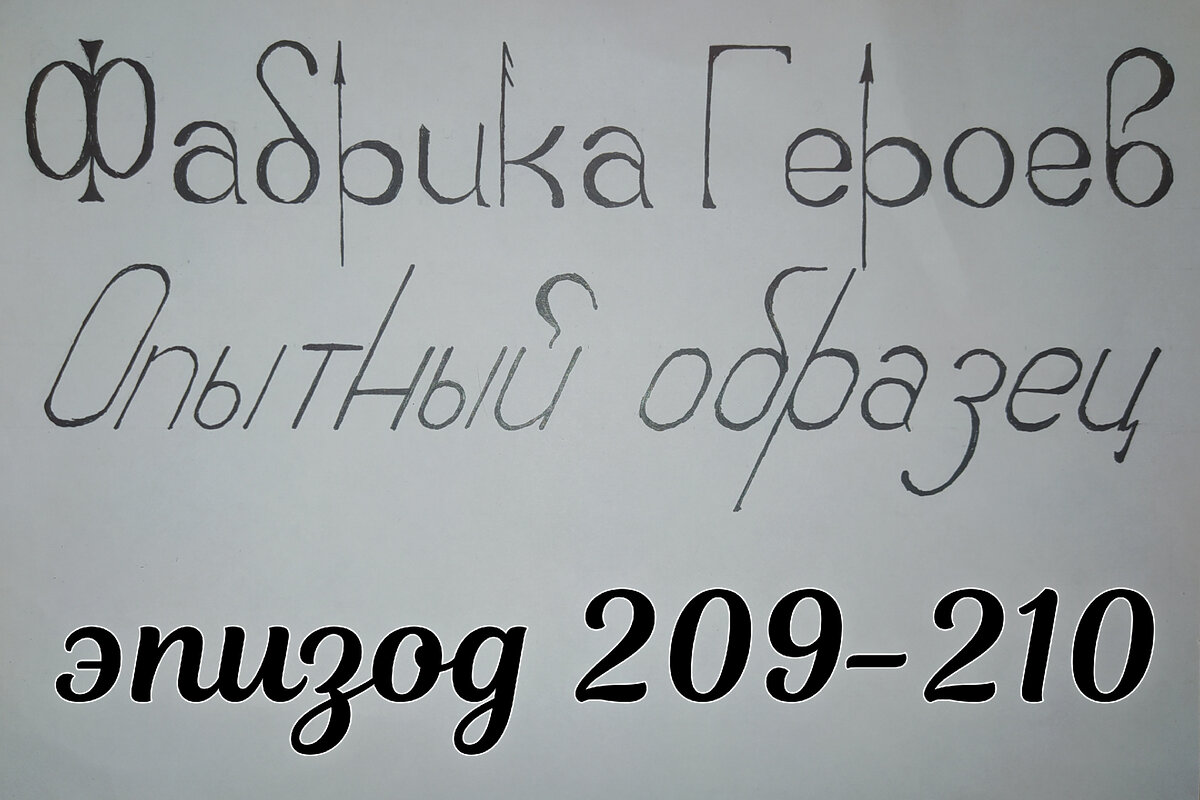 Фабрика Героев
Опытный образец
эпизод 209-210